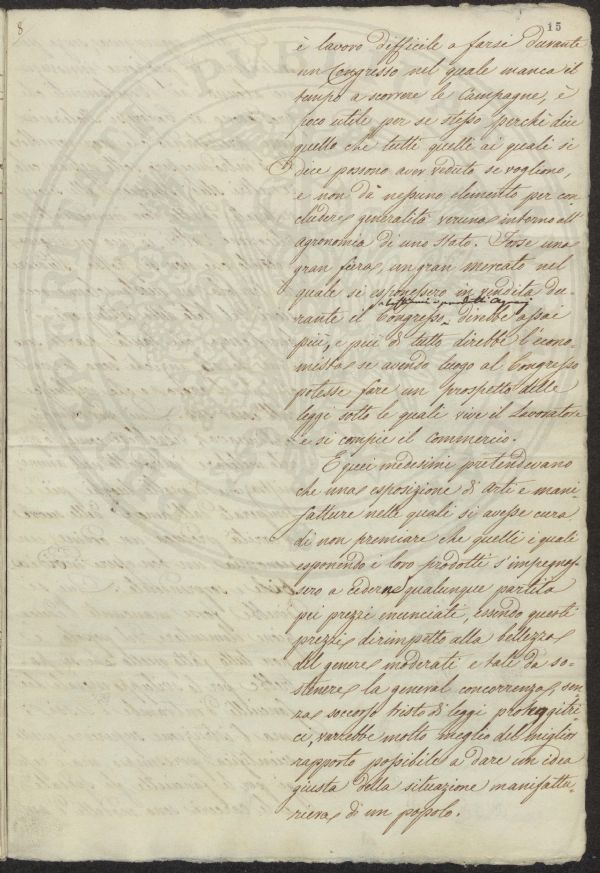 8
15
è lavoro difficile a farsi durante
un Congresso nel quale manca il
tempo a scorrere le Campagne, è
poco utile per se stesso perchè dice
quello che tutti quelli ai quali si
dice possono aver veduto se vogliono,
e non dà nessuno elemento per con
cludere generalità veruna intorno all'
agronomia di uno stato. Forse una
gran fiera, un gran mercato nel
quale si esponessero in vendita du
i prodotti
rante il Congresso direbbe assai
più, e più di tutto direbbe l'econo-
mista se avendo luogo al Congresso
potesse fare un prospetto delle
leggi sotto le quali vive il Lavoratore
e si compie il commercio.
E quei medesimi pretendevano
che una esposizione di Arti e mani
fatture nelle quali si avesse cura
di non premiare che quelli i quali
esponendo i loro prodotti s'impegnas-
sero a cederne qualunque partita
pei prezzi enunciati, essendo questi
prezzi dirimpetto alla bellezza
del genere moderati e tali da so-
stenere la general concorrenza, sen
za soccorso tristo di leggi proteggitri
ci, varrebbe molto meglio del miglior
rapporto possibile a dare un idea
giusta della situazione manifattu-
riera di un popolo.